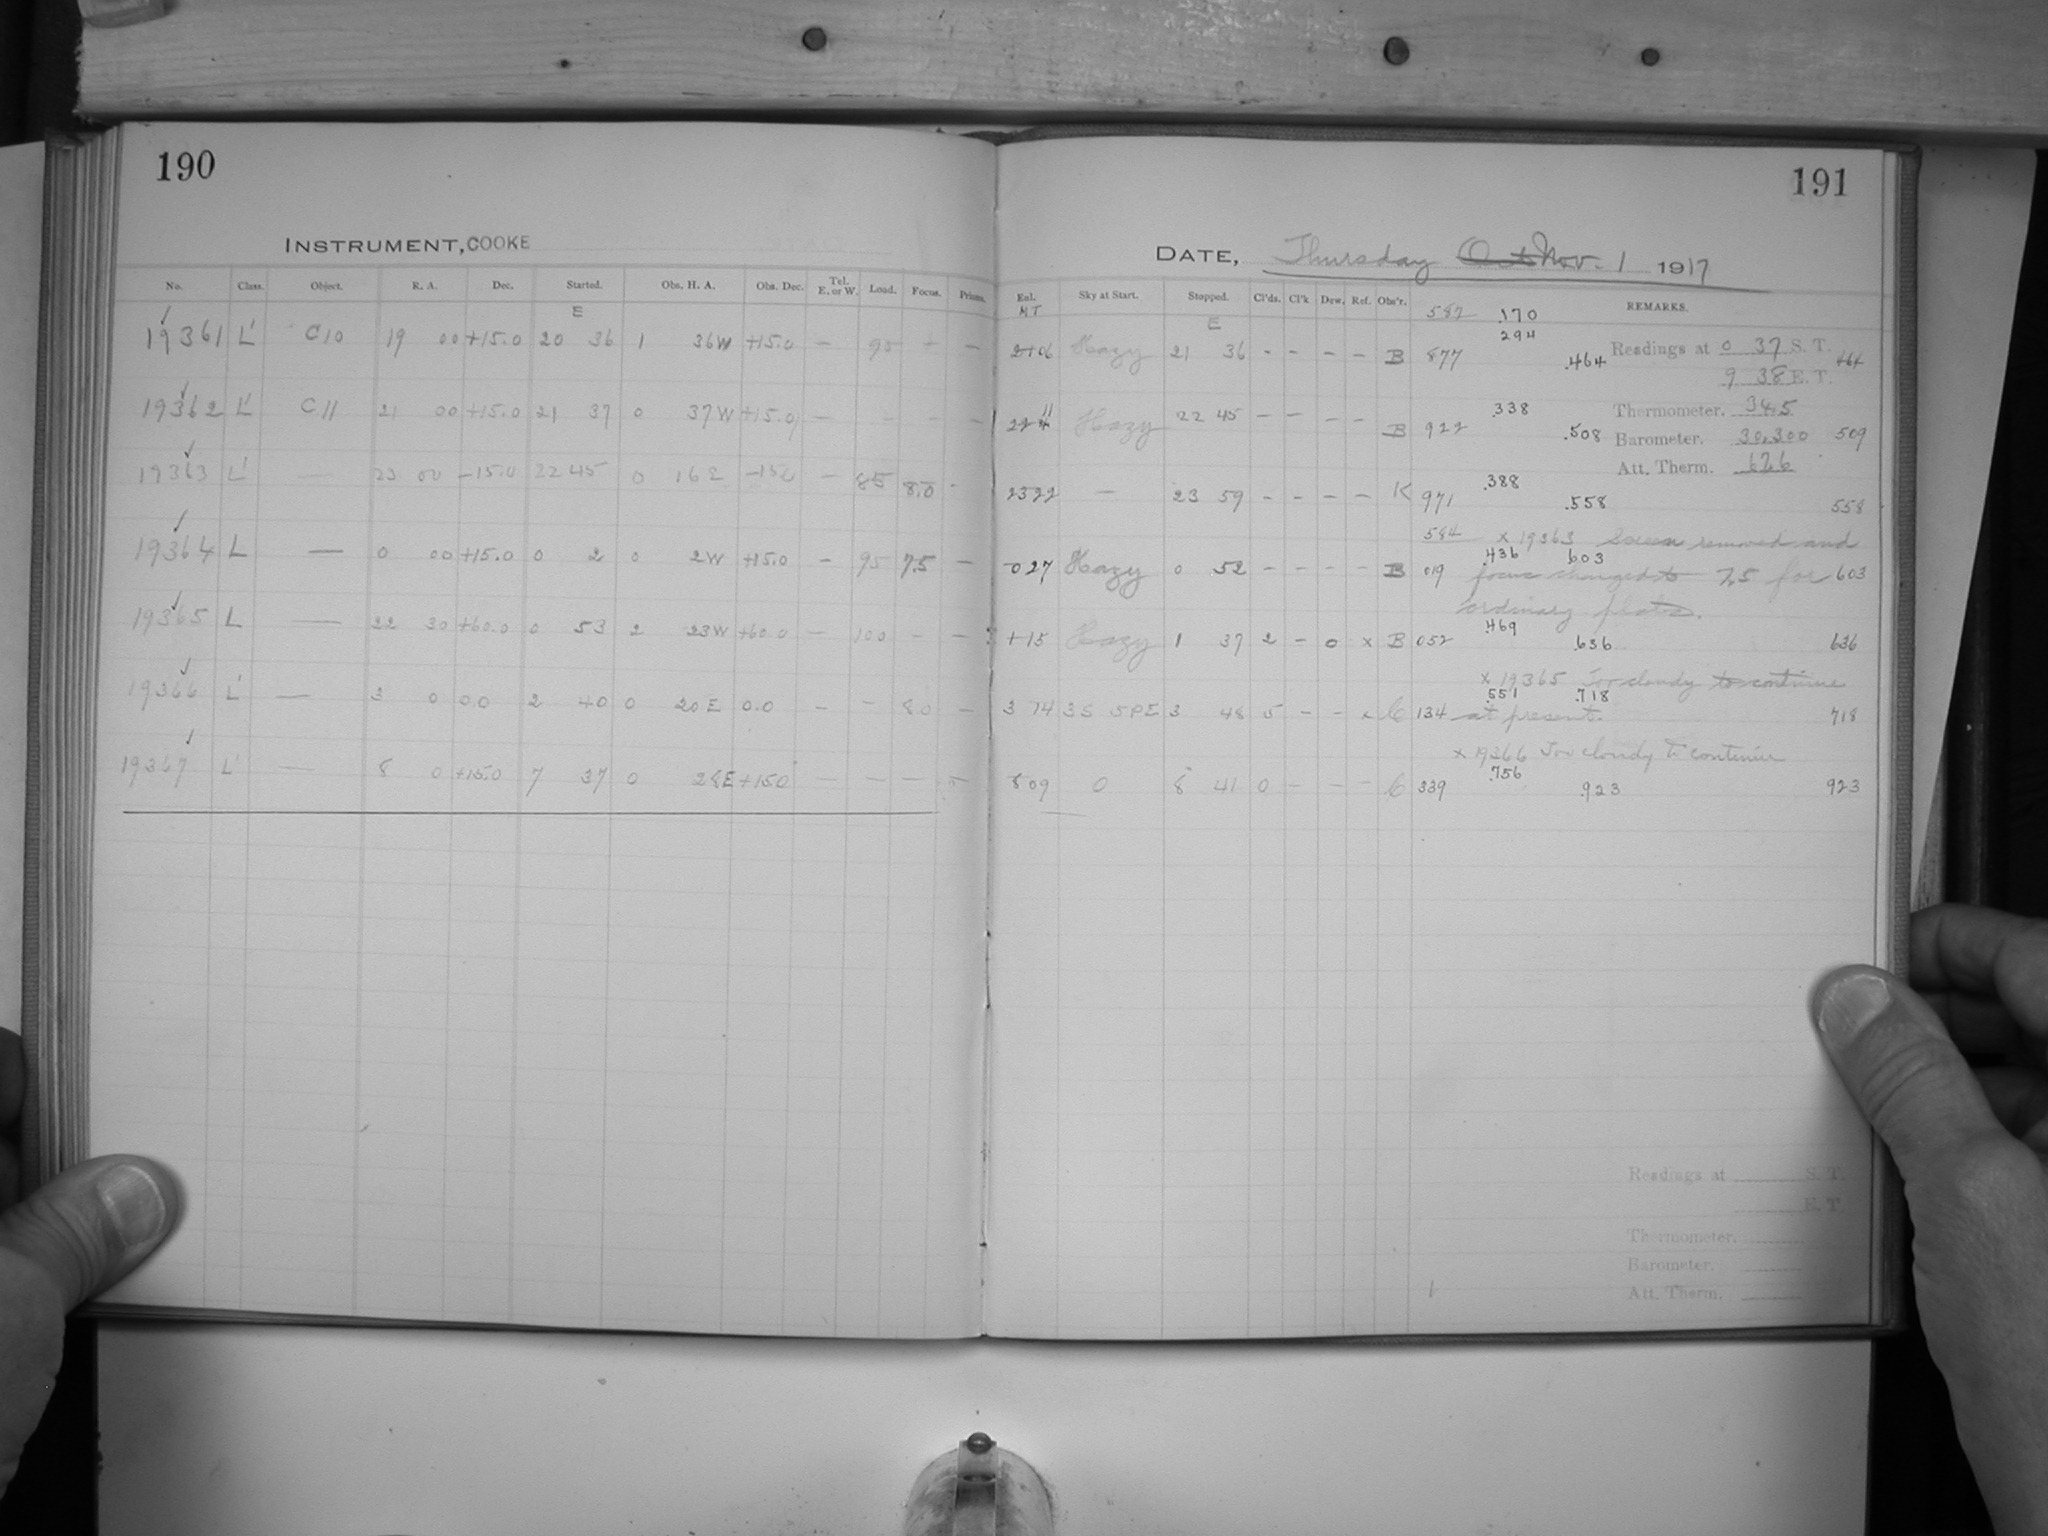 190
INSTRUMENT, COOKE
No. Class. Object. R. A. Dec. Started. Obs. H. A. Obs. Dec. Tel. E. or W. Load. Focus. Prisms.
E
19361 L' C10 19 00 +15.0 20 36 1 36W +15.0 — 95 — —
19362 L' C11 21 00 +15.0 21 37 0 37W +15.0 — — — —
19363 L' — 23 00 -15.0 22 45 0 16E -15.0 — 85 8.0 -
19364 L — 0 00 +15.0 0 2 0 2W +15.0 — 95 7.5 —
19365 L — 22 30 +60.0 0 53 2 23W +60.0 — 100 — —
19366 L' — 3 0 0.0 2 40 0 20E 0.0 — — 8.0 —
19367 L' — 8 0 +15.0 7 37 0 28E +15.0 — — — —
191
DATE, Thursday Oct Nov. 1 1917
Exl. Sky at Start. Stopped. Cl'ds. Cl'k Dew. Ref. Obs'r. REMARKS.
MT E 587 .170
.294
2106 Hazy 21 36 - - - - B 877 .464 Readings at 0 37 S. T. 464
9 38 E. T.
11 .338 Thermometer. 34.5
224 Hazy 22 45 — — — — B 922 .508 Barometer. 30.300 509
Att. Therm. 62.6
.388
2322 — 23 59 - - - - K 971 .558 558
584 x 19363 Screen removed and
.436 603
027 Hazy 0 52 - - - - B 019 focus changed to 7.5 for 603
ordinary photos.
.469
+15 Hazy 1 37 2 - 0 x B 052 .636 636
x 19365 Too cloudy to continue
.551 .718
3 14 3S SPE 3 48 5 - - x C 134 at present. 718
x 19366 Too cloudy to continue
.756
8 09 0 8 41 0 - - - C 339 .923 923
Readings at S. T.
E. T.
Thermometer.
Barometer.
Att. Therm.